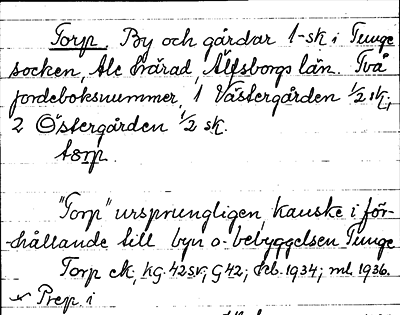 Torp By och gårdar 1 sk i Tunge
socken, Ale härad, Älfsborgs län. Två
jordeboksnummer, 1 Västergården 1/2 sk,
2 Östergården 1/2 sk.
torp.
"Torp" ursprungligen, kanske i för-
hållande till byn o. bebyggelsen Tunge
Torp ek, KG 42sv; G42; hbl. 1934; ml 1936.
Prep i